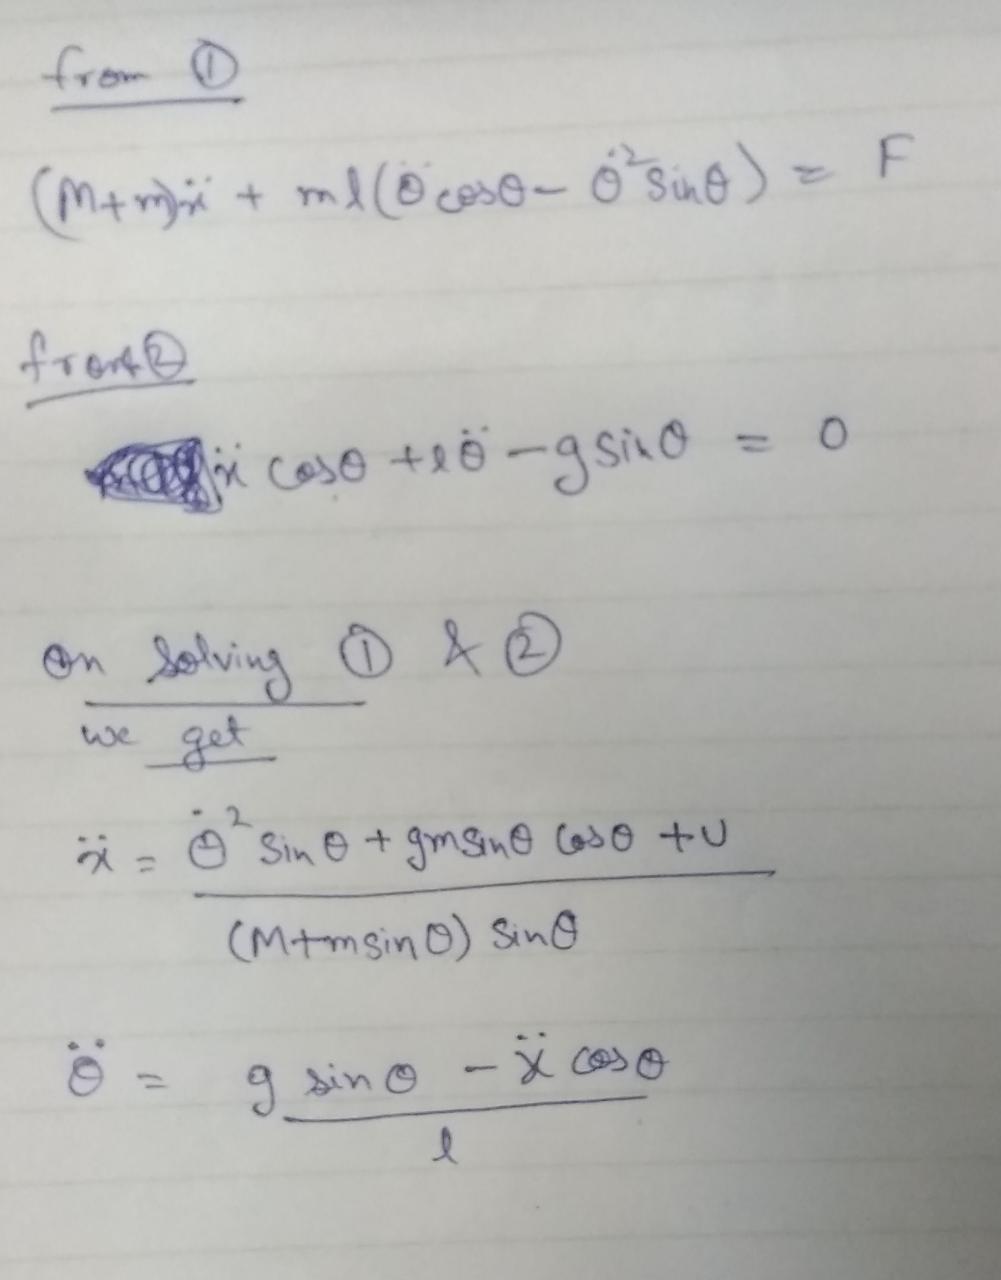 from ①
(M+m)ẍ + ml(θ̈ cosθ - θ̇² sinθ) = F
from ②
ẍ cosθ + lθ̈ - g sinθ = 0
On Solving ① & ②
we get
ẍ = θ̇² sinθ + gmsinθ cosθ + U
(M+msinθ) sinθ
θ̈ = g sinθ - ẍ cosθ
l